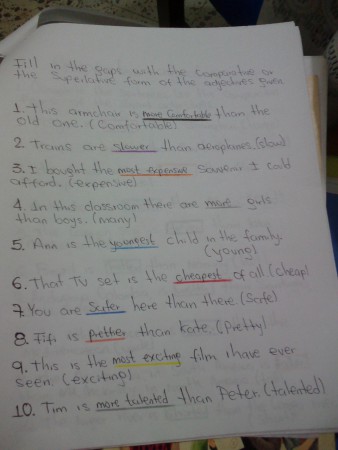 Fill in the gaps with the comparative or
the Superlative form of the adjectives given
1. This armchair is more Comfortable than the
old one. (Comfortable)
2. Trains are slower than aeroplanes. (slow)
3. I bought the most expensive Souvenir I could
afford. (expensive)
4. In this classroom there are more girls
than boys. (many)
5. Ann is the youngest child in the family.
(young)
6. That TV set is the cheapest of all. (cheap)
7. You are Safer here than there. (Safe)
8. Fifi is prettier than Kate. (Pretty)
9. This is the most exciting film I have ever
seen. (exciting)
10. Tim is more talented than Peter. (talented)